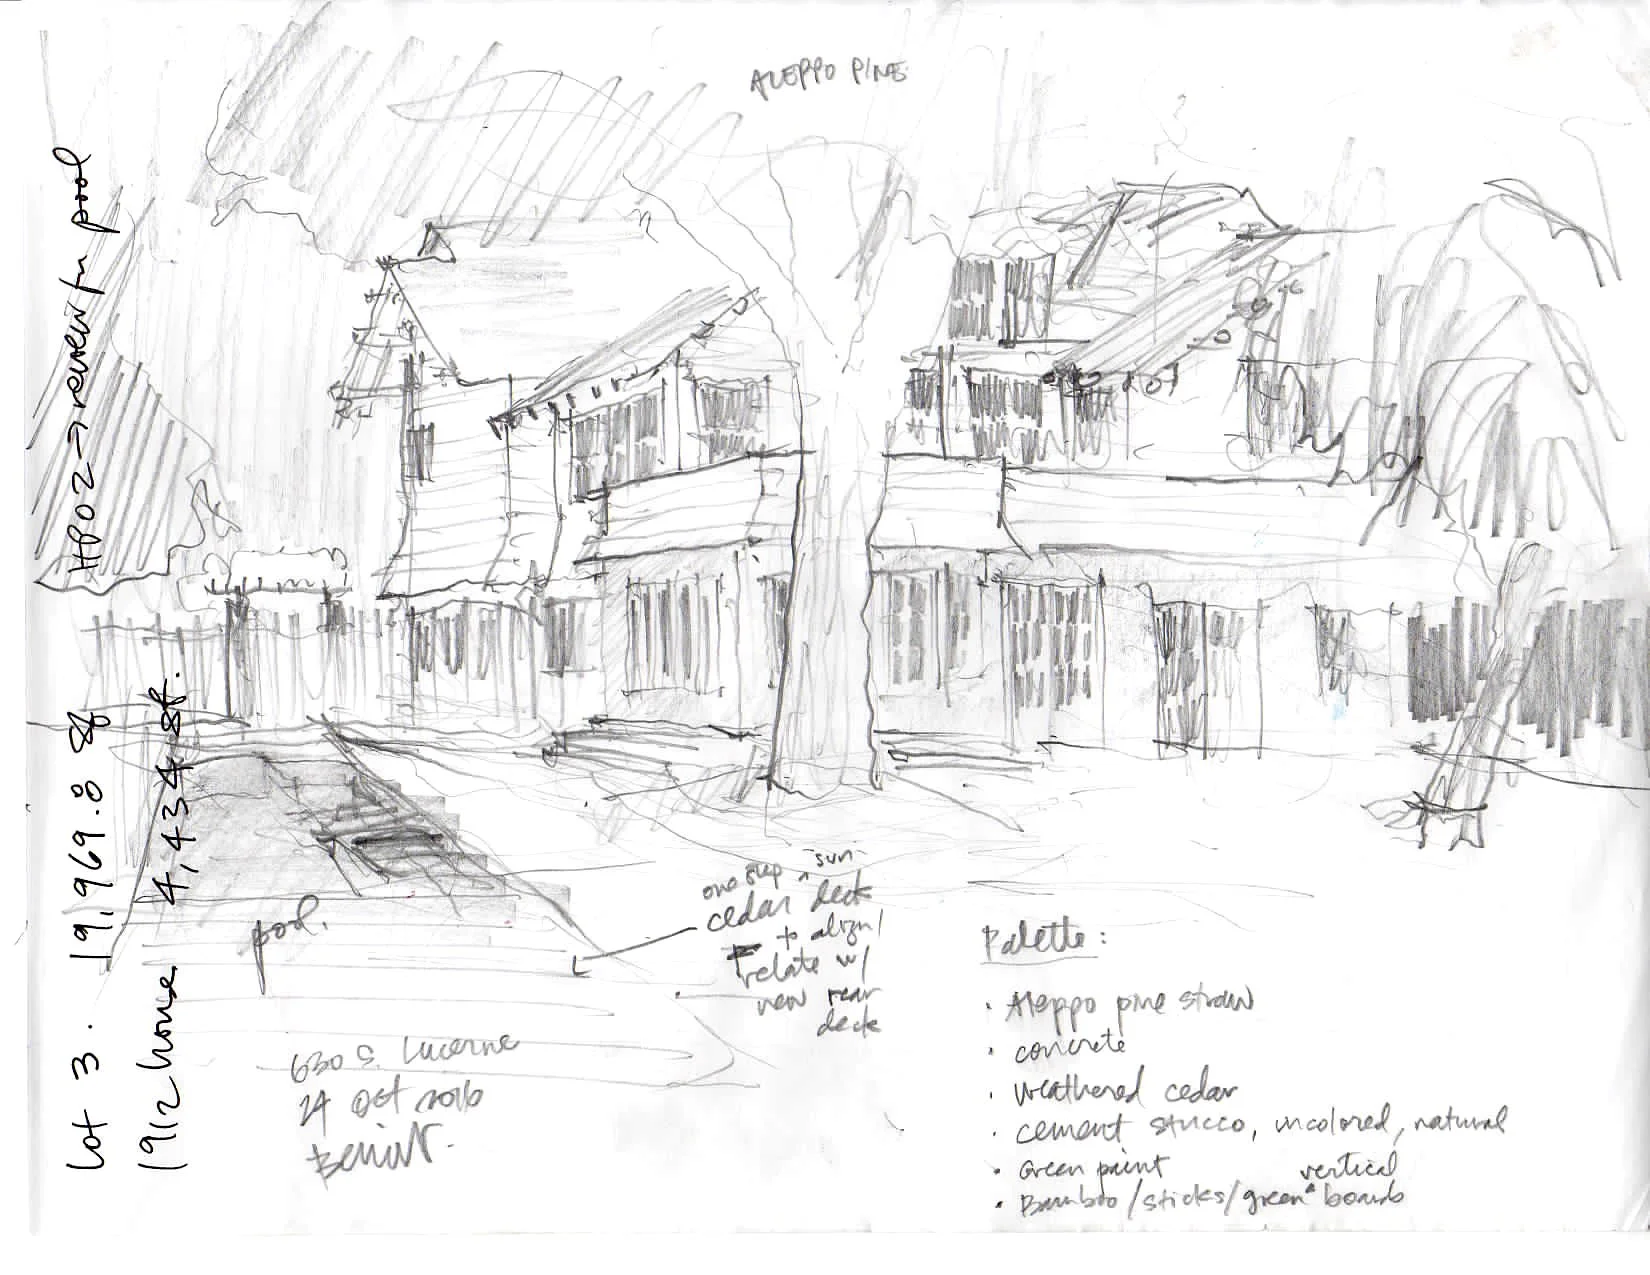 ALEPPO PINE
HPOZ → review for pool
Lot 3. 19,969.8 sf
1912 house 4,434 sf.
pool.
one step ^sun-
cedar deck
to align/
relate w/
new rear
deck
630 S. Lucerne
24 Oct 2016
Palette:
· Aleppo pine straw
· concrete
· weathered cedar
· cement stucco, uncolored, natural
· Green paint
vertical
· Bamboo/sticks/green ^ boards